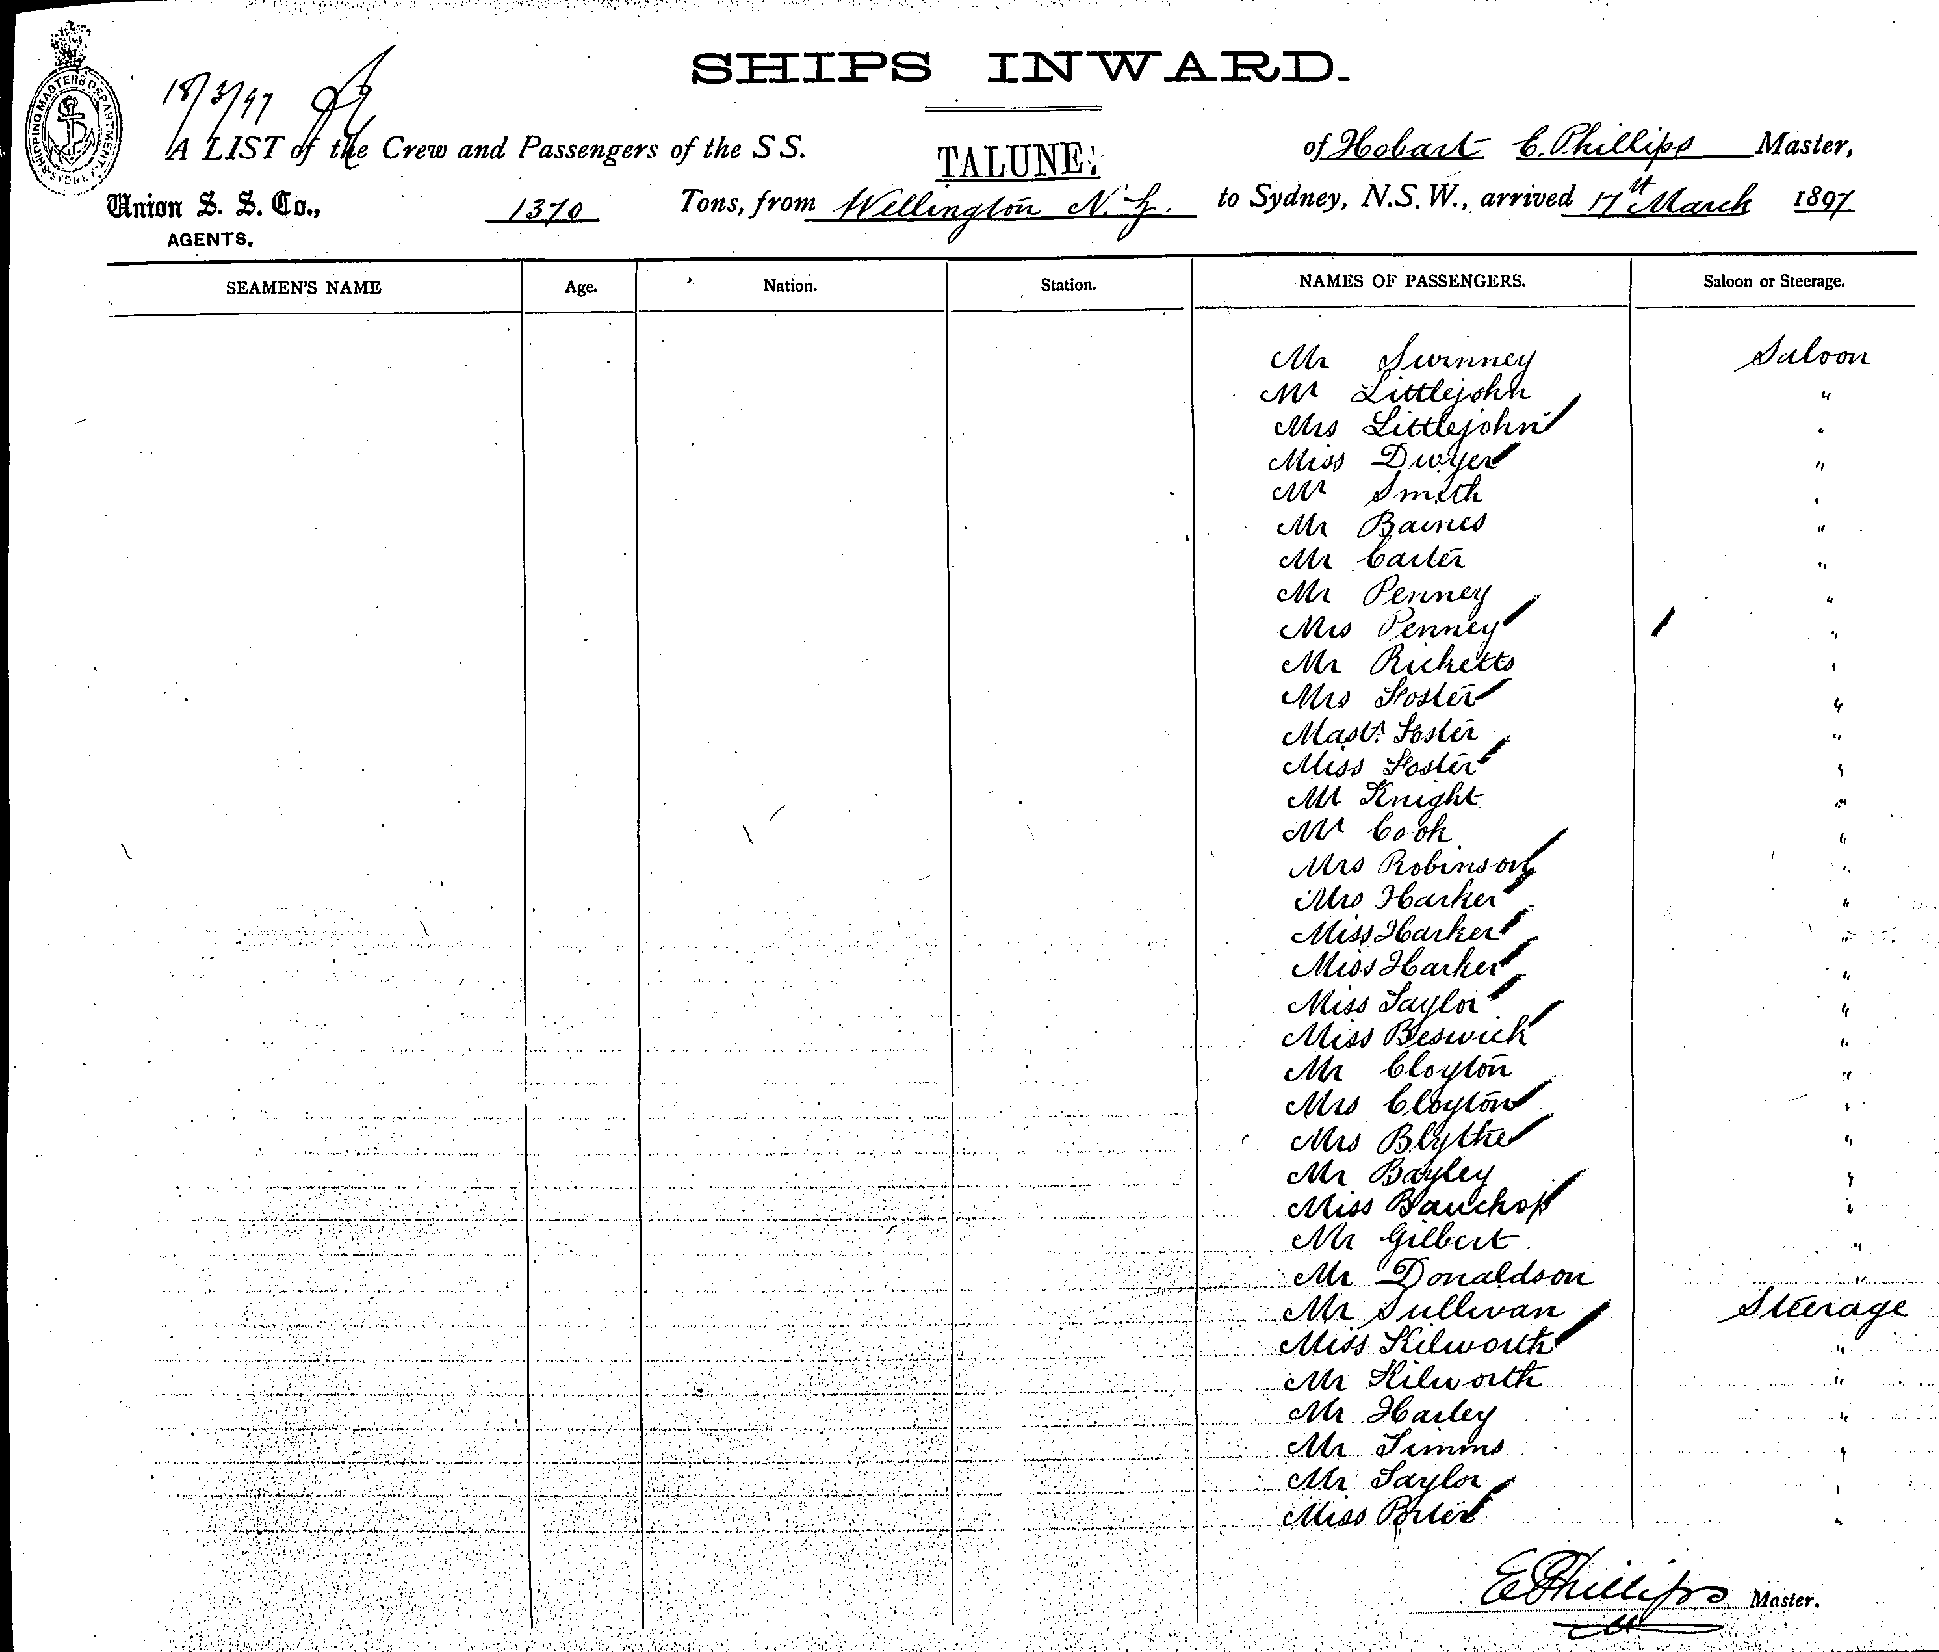 SHIPS INWARD.
18/3/97
SHIPPING MASTERS DEPARTMENT SYDNEY
A LIST of the Crew and Passengers of the SS. TALUNE. of Hobart E. Phillips Master,
Union S. S. Co., 1370 Tons, from Wellington N.Z. to Sydney, N.S.W., arrived 17th March 1897
AGENTS.
SEAMEN'S NAME Age. Nation. Station. NAMES OF PASSENGERS. Saloon or Steerage.
Mr Swinney Saloon
Mr Littlejohn "
Mrs Littlejohn "
Miss Dwyer "
Mr Smith "
Mr Baines "
Mr Carter "
Mr Penney "
Mrs Penney "
Mr Ricketts "
Mrs Foster "
Mastr Foster "
Miss Foster "
Mr Knight "
Mr Cook "
Mrs Robinson "
Mrs Harker "
Miss Harker "
Miss Harker "
Miss Taylor "
Miss Beswick "
Mr Cloyton "
Mrs Cloyton "
Mrs Blythe "
Mr Bayley "
Miss Bauchop "
Mr Gilbert "
Mr Donaldson "
Mr Sullivan Steerage
Miss Kilworth "
Mr Kilworth "
Mr Harley "
Mr Timms "
Mr Taylor "
Miss "
E Phillips Master.